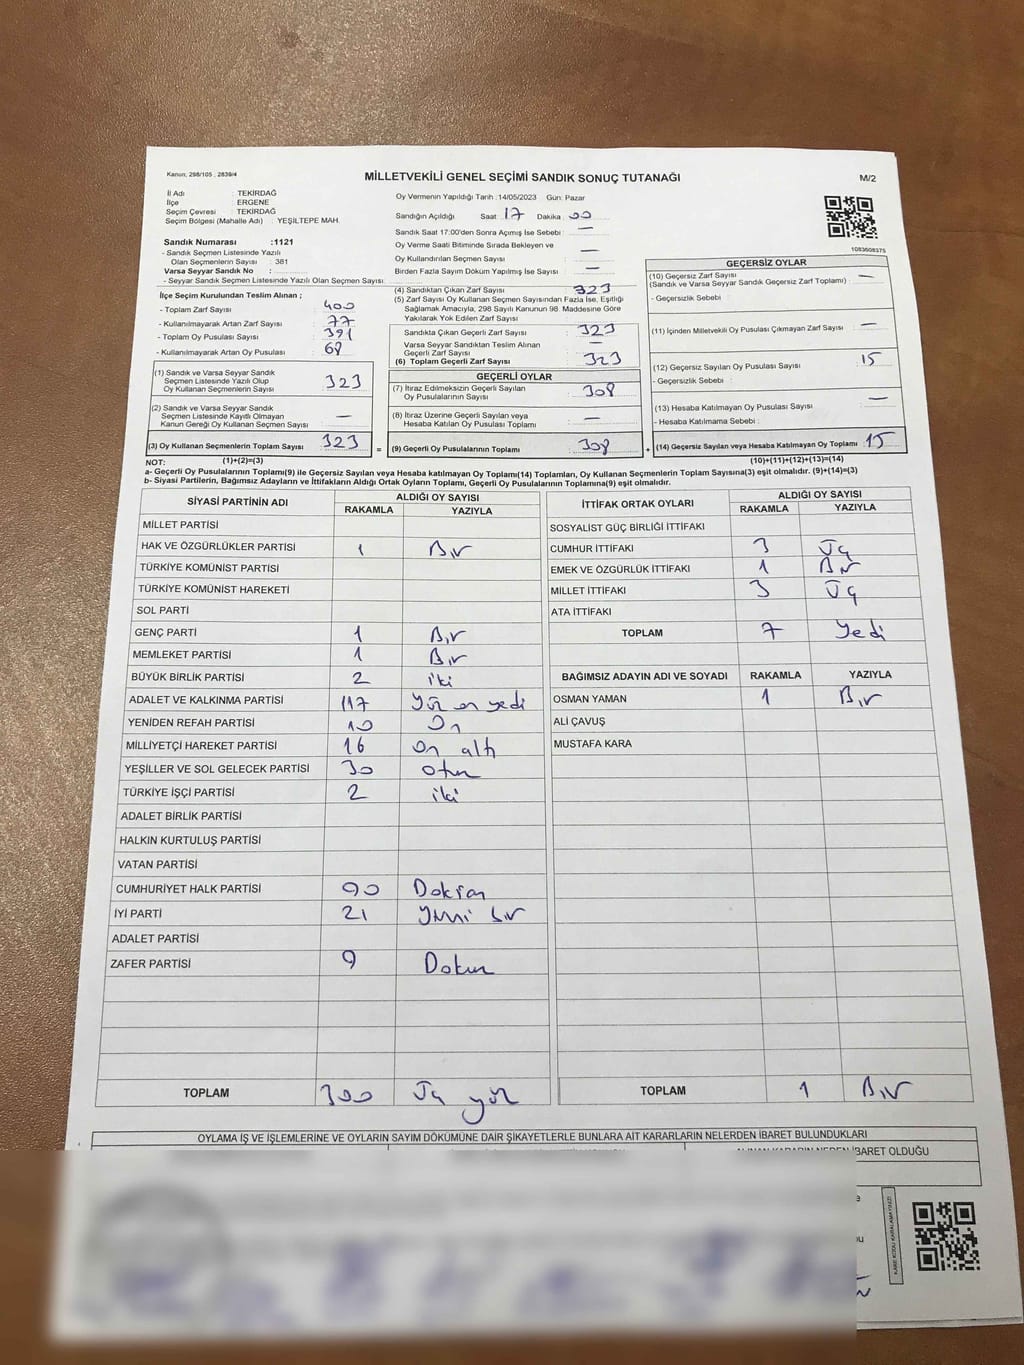 Kanun, 298/105 , 2839/4
MİLLETVEKİLİ GENEL SEÇİMİ SANDIK SONUÇ TUTANAĞI
M/2
İl Adı : TEKİRDAĞ
İlçe : ERGENE
Seçim Çevresi : TEKİRDAĞ
Seçim Bölgesi (Mahalle Adı) : YEŞİLTEPE MAH.
Sandık Numarası :1121
- Sandık Seçmen Listesinde Yazılı
Olan Seçmenlerin Sayısı : 381
Varsa Seyyar Sandık No :
- Seyyar Sandık Seçmen Listesinde Yazılı Olan Seçmen Sayısı:
Oy Vermenin Yapıldığı Tarih :14/05/2023 Gün: Pazar
Sandığın Açıldığı Saat : 17 Dakika : 00
Sandık Saat 17:00'den Sonra Açımış İse Sebebi : —
Oy Verme Saati Bitiminde Sırada Bekleyen ve
Oy Kullandırılan Seçmen Sayısı : —
Birden Fazla Sayım Döküm Yapılmış İse Sayısı : —
1083608375
İlçe Seçim Kurulundan Teslim Alınan ;
- Toplam Zarf Sayısı : 400
- Kullanılmayarak Artan Zarf Sayısı : 77
- Toplam Oy Pusulası Sayısı : 391
- Kullanılmayarak Artan Oy Pusulası : 68
(1) Sandık ve Varsa Seyyar Sandık
Seçmen Listesinde Yazılı Olup
Oy Kullanan Seçmenlerin Sayısı : 323
(2) Sandık ve Varsa Seyyar Sandık
Seçmen Listesinde Kayıtlı Olmayan
Kanun Gereği Oy Kullanan Seçmen Sayısı : —
(3) Oy Kullanan Seçmenlerin Toplam Sayısı : 323
(1)+(2)=(3)
(4) Sandıktan Çıkan Zarf Sayısı : 323
(5) Zarf Sayısı Oy Kullanan Seçmen Sayısından Fazla İse, Eşitliği
Sağlamak Amacıyla, 298 Sayılı Kanunun 98. Maddesine Göre
Yakılarak Yok Edilen Zarf Sayısı :
Sandıkta Çıkan Geçerli Zarf Sayısı : 323
Varsa Seyyar Sandıktan Teslim Alınan
Geçerli Zarf Sayısı : —
(6) Toplam Geçerli Zarf Sayısı : 323
GEÇERLİ OYLAR
(7) İtiraz Edilmeksizin Geçerli Sayılan
Oy Pusulalarının Sayısı : 308
(8) İtiraz Üzerine Geçerli Sayılan veya
Hesaba Katılan Oy Pusulası Sayısı : —
= (9) Geçerli Oy Pusulalarının Toplamı : 308
GEÇERSİZ OYLAR
(10) Geçersiz Zarf Sayısı
(Sandık ve Varsa Seyyar Sandık Geçersiz Zarf Toplamı) : —
- Geçersizlik Sebebi :
(11) İçinden Milletvekili Oy Pusulası Çıkmayan Zarf Sayısı : —
(12) Geçersiz Sayılan Oy Pusulası Sayısı : 15
- Geçersizlik Sebebi :
(13) Hesaba Katılmayan Oy Pusulası Sayısı : —
- Hesaba Katılmama Sebebi :
+ (14) Geçersiz Sayılan veya Hesaba Katılmayan Oy Toplamı : 15
(10)+(11)+(12)+(13)=(14)
NOT:
a- Geçerli Oy Pusulalarının Toplamı(9) ile Geçersiz Sayılan veya Hesaba katılmayan Oy Toplamı(14) Toplamları, Oy Kullanan Seçmenlerin Toplam Sayısına(3) eşit olmalıdır. (9)+(14)=(3)
b- Siyasi Partilerin, Bağımsız Adayların ve İttifakların Aldığı Ortak Oyların Toplamı, Geçerli Oy Pusulalarının Toplamına(9) eşit olmalıdır.
SİYASİ PARTİNİN ADI ALDIĞI OY SAYISI
RAKAMLA YAZIYLA
MİLLET PARTİSİ
HAK VE ÖZGÜRLÜKLER PARTİSİ 1 Bir
TÜRKİYE KOMÜNİST PARTİSİ
TÜRKİYE KOMÜNİST HAREKETİ
SOL PARTİ
GENÇ PARTİ 1 Bir
MEMLEKET PARTİSİ 1 Bir
BÜYÜK BİRLİK PARTİSİ 2 iki
ADALET VE KALKINMA PARTİSİ 117 Yüz on yedi
YENİDEN REFAH PARTİSİ 10 On
MİLLİYETÇİ HAREKET PARTİSİ 16 On altı
YEŞİLLER VE SOL GELECEK PARTİSİ 30 Otuz
TÜRKİYE İŞÇİ PARTİSİ 2 iki
ADALET BİRLİK PARTİSİ
HALKIN KURTULUŞ PARTİSİ
VATAN PARTİSİ
CUMHURİYET HALK PARTİSİ 90 Doksan
İYİ PARTİ 21 Yirmi bir
ADALET PARTİSİ
ZAFER PARTİSİ 9 Dokuz
TOPLAM 300 Üç yüz
İTTİFAK ORTAK OYLARI ALDIĞI OY SAYISI
RAKAMLA YAZIYLA
SOSYALİST GÜÇ BİRLİĞİ İTTİFAKI
CUMHUR İTTİFAKI 3 Üç
EMEK VE ÖZGÜRLÜK İTTİFAKI 1 Bir
MİLLET İTTİFAKI 3 Üç
ATA İTTİFAKI
TOPLAM 7 Yedi
BAĞIMSIZ ADAYIN ADI VE SOYADI RAKAMLA YAZIYLA
OSMAN YAMAN 1 Bir
ALİ ÇAVUŞ
MUSTAFA KARA
TOPLAM 1 Bir
OYLAMA İŞ VE İŞLEMLERİNE VE OYLARIN SAYIM DÖKÜMÜNE DAİR ŞİKAYETLERLE BUNLARA AİT KARARLARIN NELERDEN İBARET BULUNDUKLARI
ALINAN KARARIN NEDEN İBARET OLDUĞU